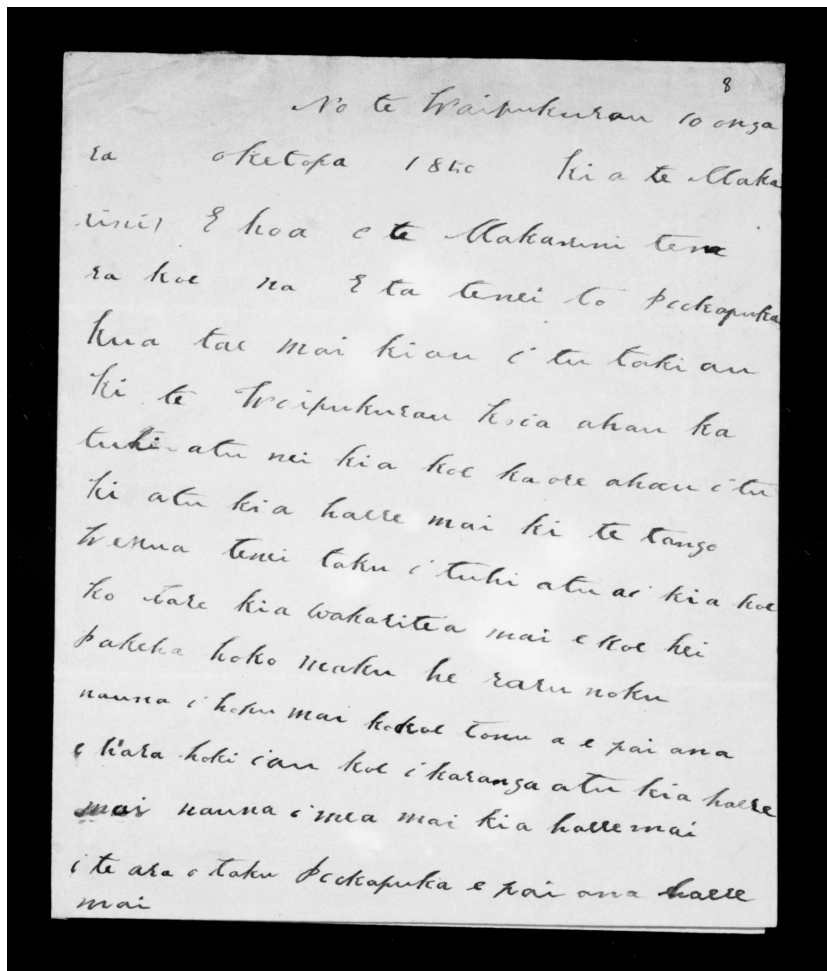 8
No te Waipukurau 10 onga
ra oketopa 1850 ki a te Maka
rini E hoa e te Makarini tena
ra koe na E ta tenei to pukapuka
kua tae mai kiau i tu taki au
ki te Waipukurau koia ahau ka
tuhi atu nei kia koe kaore ahau i tu
hi atu kia haere mai ki te tango
wenua tenei taku i tuhi atu ai kia koe
ko tare kia wakaritea mai e koe hei
pakeha hoko maku he raru noku
nauna i hoku mai kokoe tonu a e pai ana
e hara hoki iau koe i karanga atu kia haere
mai nauna i mea mai kia haere mai
i te ara o taku pukapuka e pai ana haere
mai